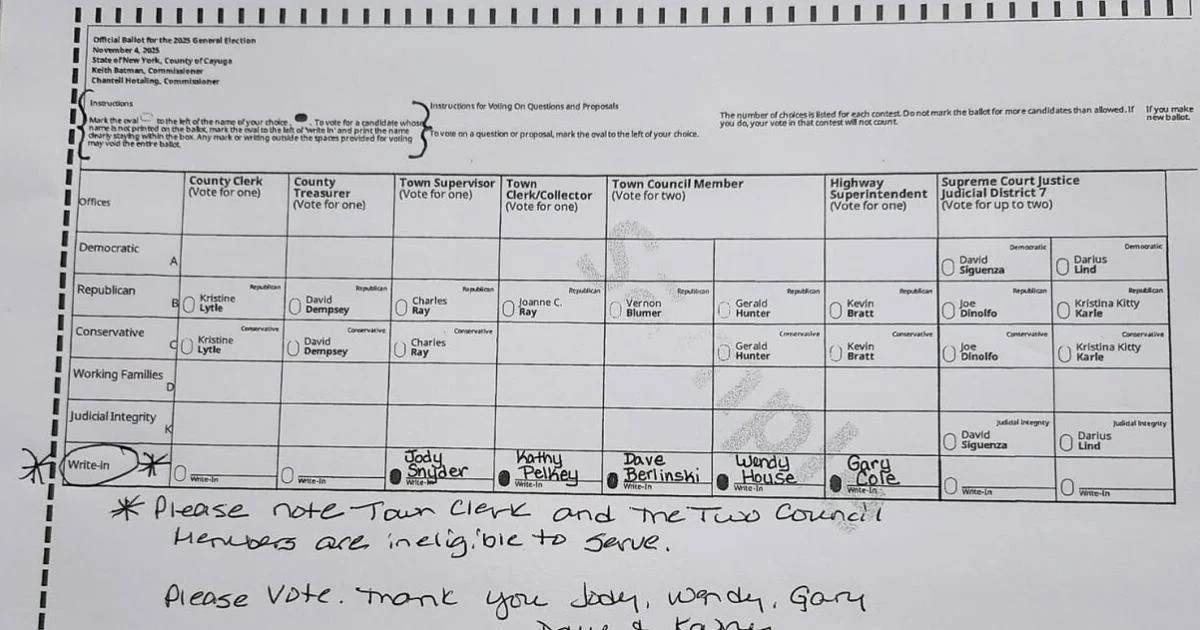 Official Ballot for the 2025 General Election
November 4, 2025
State of New York, County of Cayuga
Keith Batman, Commissioner
Chantell Hotaling, Commissioner
Instructions
Mark the oval to the left of the name of your choice. To vote for a candidate whose
name is not printed on the ballot, mark the oval to the left of 'write in' and print the name
clearly staying within the box. Any mark or writing outside the spaces provided for voting
may void the entire ballot.
Instructions for Voting On Questions and Proposals
To vote on a question or proposal, mark the oval to the left of your choice.
The number of choices is listed for each contest. Do not mark the ballot for more candidates than allowed. If
you do, your vote in that contest will not count.
If you make
new ballot.
Offices
County Clerk
(Vote for one)
County
Treasurer
(Vote for one)
Town Supervisor
(Vote for one)
Town
Clerk/Collector
(Vote for one)
Town Council Member
(Vote for two)
Highway
Superintendent
(Vote for one)
Supreme Court Justice
Judicial District 7
(Vote for up to two)
Democratic
A
Democratic
David
Siguenza
Democratic
Darius
Lind
Republican
B
Republican
Kristine
Lytle
Republican
David
Dempsey
Republican
Charles
Ray
Republican
Joanne C.
Ray
Republican
Vernon
Blumer
Republican
Gerald
Hunter
Republican
Kevin
Bratt
Republican
Joe
Dinolfo
Republican
Kristina Kitty
Karle
Conservative
C
Conservative
Kristine
Lytle
Conservative
David
Dempsey
Conservative
Charles
Ray
Conservative
Gerald
Hunter
Conservative
Kevin
Bratt
Conservative
Joe
Dinolfo
Conservative
Kristina Kitty
Karle
Working Families
D
Judicial Integrity
K
Judicial Integrity
David
Siguenza
Judicial Integrity
Darius
Lind
Write-in
Write-In
Write-In
Jody
Snyder
Write-In
Kathy
Pelkey
Write-In
Dave
Berlinski
Write-In
Wendy
House
Write-In
Gary
Cole
Write-In
Write-In
Write-In
* Please note Town Clerk and The Two Council
Members are ineligible to serve.
Please Vote. Thank you Jody, Wendy, Gary